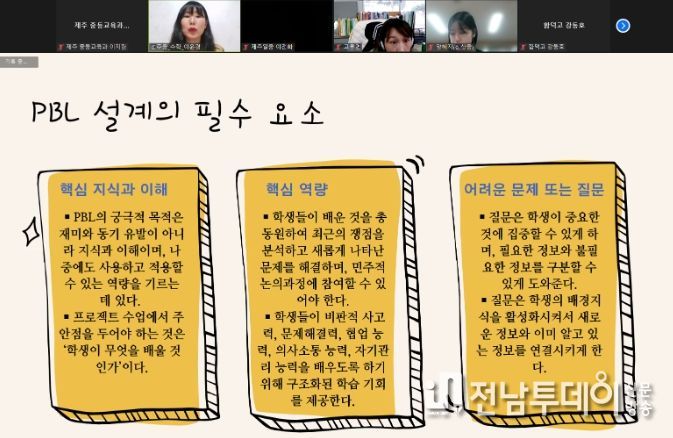 제주 중등교육과...
함덕고 강동호
제주 중등교육과 이지원
제주일중 이진화
함덕고 강동호
기록 중...
PBL 설계의 필수 요소
핵심 지식과 이해
▪ PBL의 궁극적 목적은
재미와 동기 유발이 아니
라 지식과 이해이며, 나
중에도 사용하고 적용할
수 있는 역량을 기르는
데 있다.
▪ 프로젝트 수업에서 주
안점을 두어야 하는 것은
‘학생이 무엇을 배울 것
인가’이다.
핵심 역량
▪ 학생들이 배운 것을 총
동원하여 최근의 쟁점을
분석하고 새롭게 나타난
문제를 해결하며, 민주적
논의과정에 참여할 수 있
어야 한다.
▪ 학생들이 비판적 사고
력, 문제해결력, 협업 능
력, 의사소통 능력, 자기관
리 능력을 배우도록 하기
위해 구조화된 학습 기회
를 제공한다.
어려운 문제 또는 질문
▪ 질문은 학생이 중요한
것에 집중할 수 있게 하
며, 필요한 정보와 불필
요한 정보를 구분할 수
있게 도와준다.
▪ 질문은 학생의 배경지
식을 활성화시켜서 새로
운 정보와 이미 알고 있
는 정보를 연결시키게 한
다.
전남투데이
신문
방송